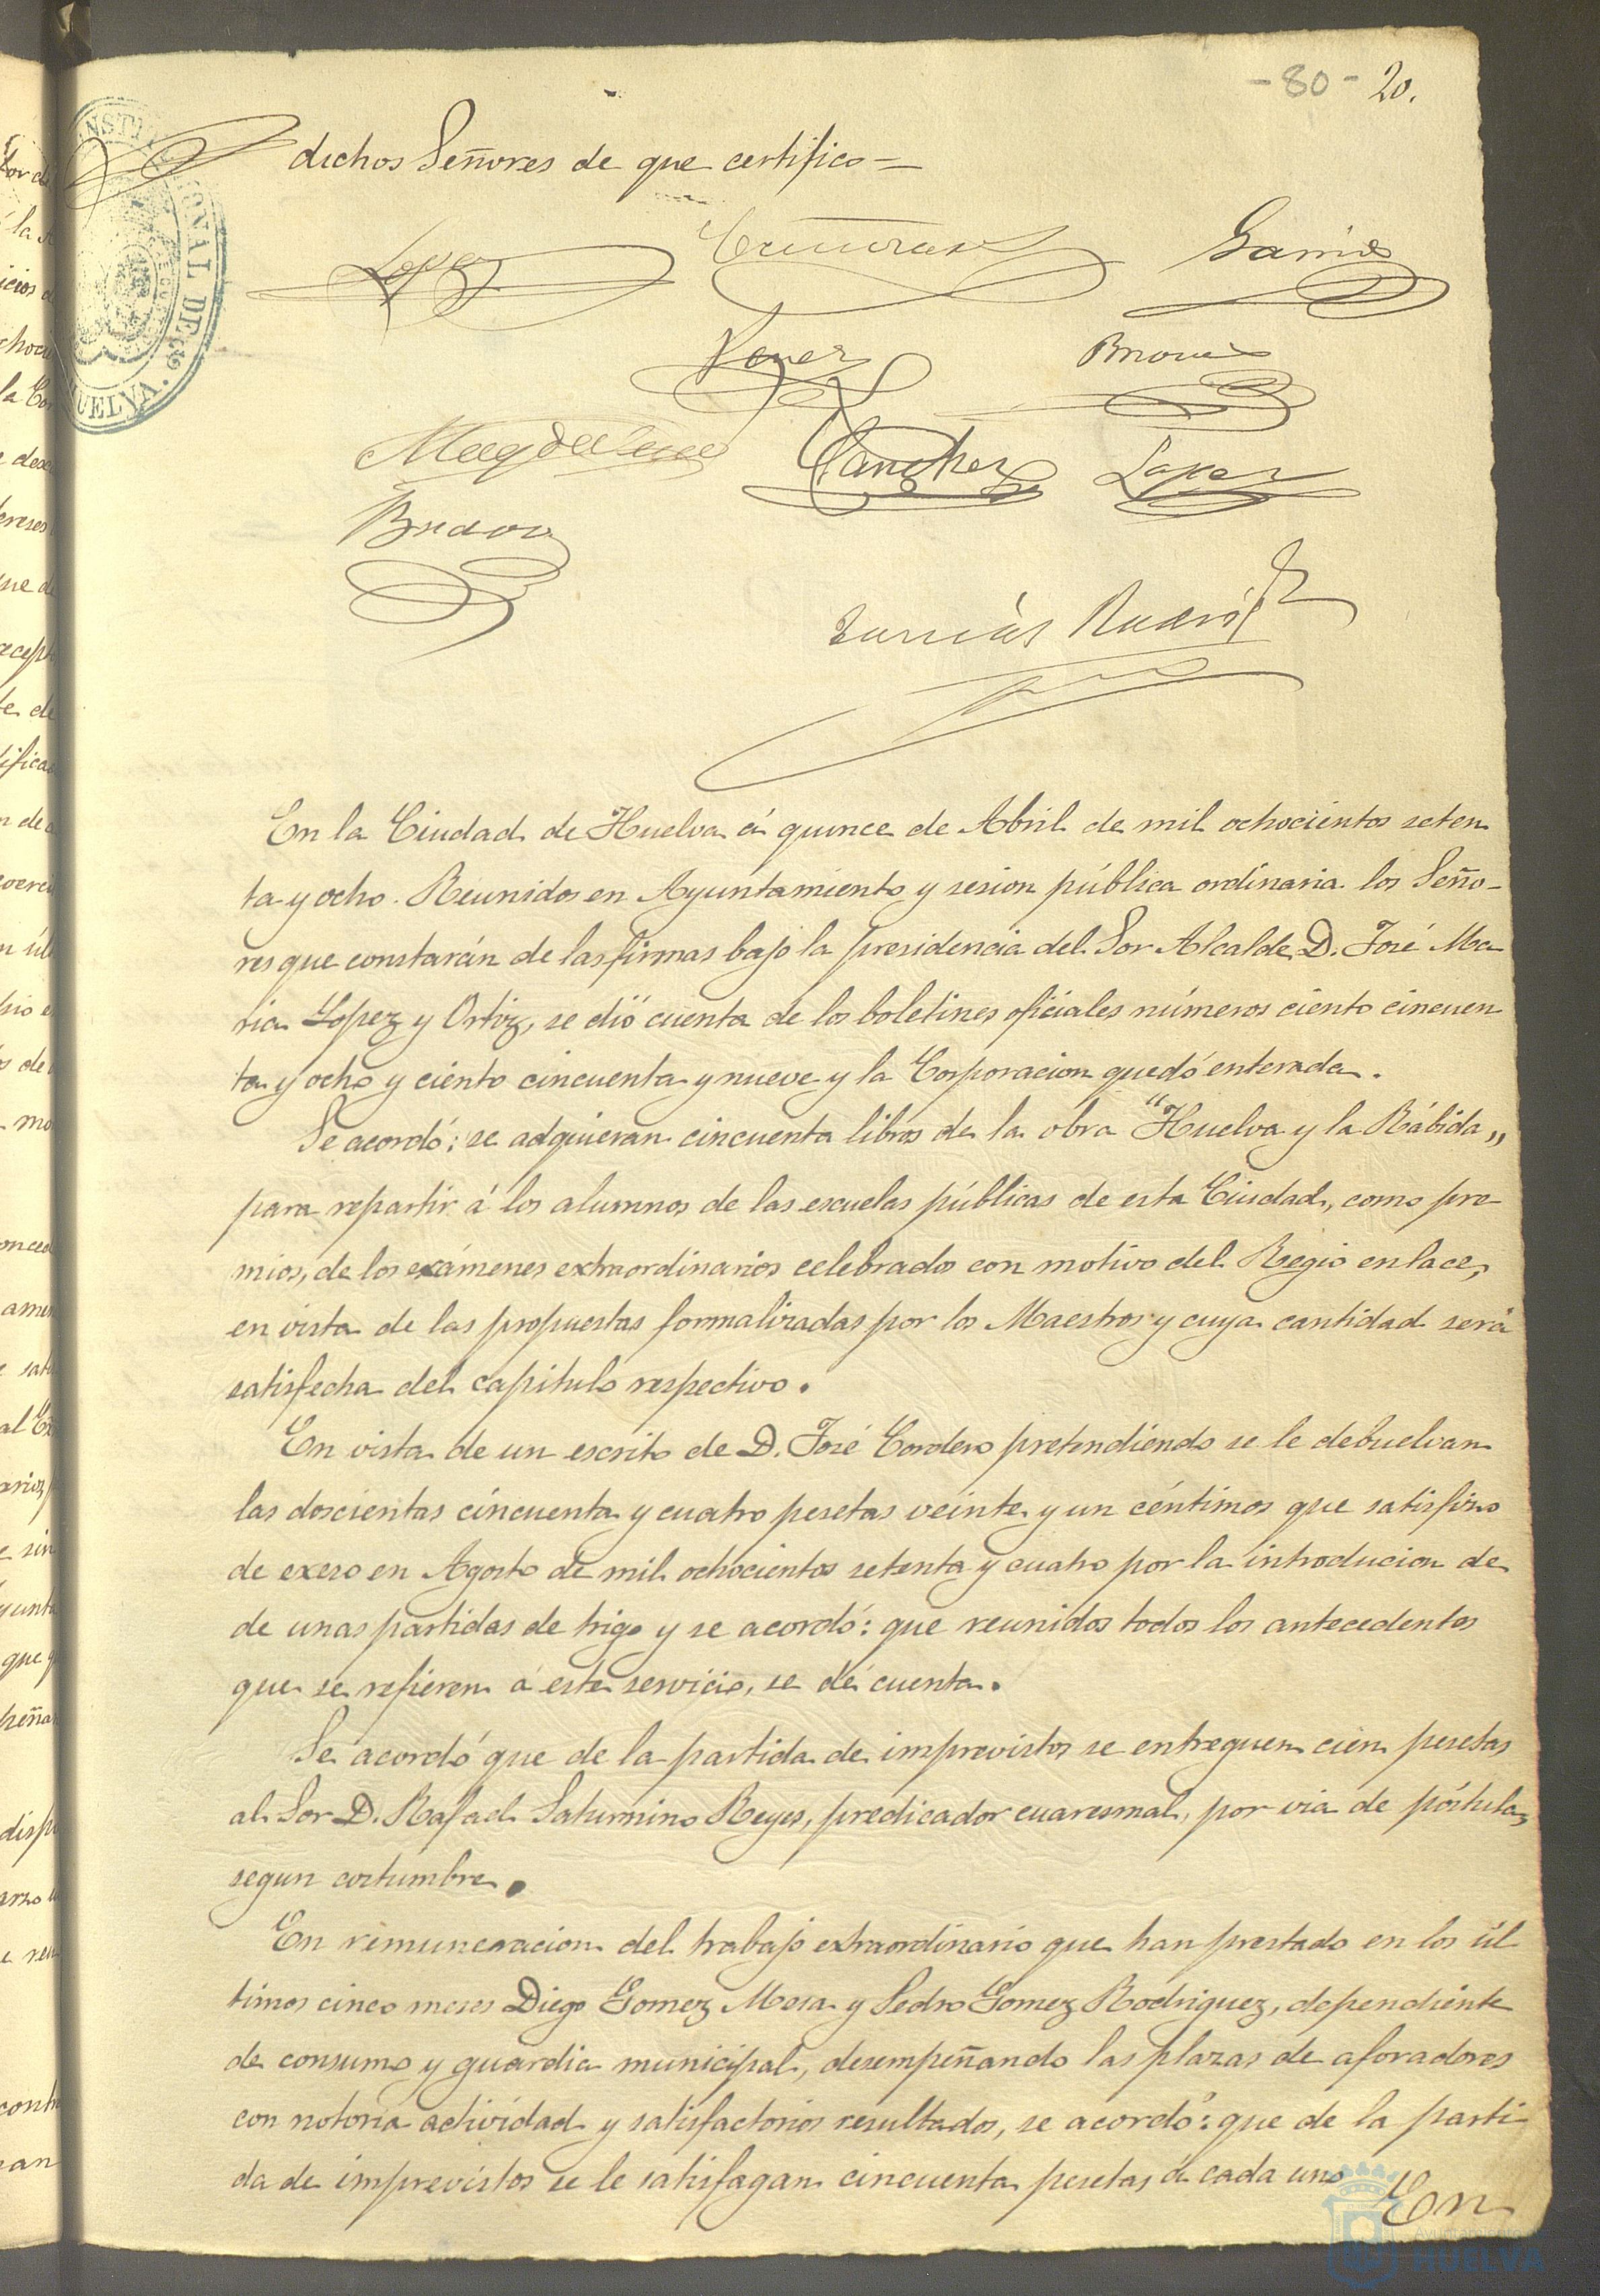 - 80 - 20.
dichos Señores de que certifico =
Lopez
Garrido
Perez
Sanchez Lopez
Bravo
En la Ciudad de Huelva á quince de Abril de mil ochocientos seten
ta y ocho. Reunidos en Ayuntamiento y sesion pública ordinaria los Seño-
res que constarán de las firmas bajo la presidencia del Sor Alcalde D. José Ma
ria Lopez y Ortiz, se dió cuenta de los boletines oficiales números ciento cincuen
ta y ocho y ciento cincuenta y nueve y la Corporacion quedó enterada.
Se acordó: se adquieran cincuenta libros de la obra "Huelva y la Rábida„
para repartir á los alumnos de las escuelas públicas de esta Ciudad, como pre-
mios, de los exámenes extraordinarios celebrados con motivo del Regio enlace,
en vista de las propuestas formalizadas por los Maestros y cuya cantidad será
satisfecha del capitulo respectivo.
En vista de un escrito de D. José Cordero pretendiendo se le debuelvan
las doscientas cincuenta y cuatro pesetas veinte y un céntimos que satisfizo
de exeso en Agosto de mil ochocientos setenta y cuatro por la introducion de
de unas partidas de trigo y se acordó: que reunidos todos los antecedentes
que se refieren á este servicio, se dé cuenta.
Se acordó que de la partida de imprevistos se entreguen cien pesetas
al Sor D. Rafael Saturnino Reyes, predicador cuaresmal, por via de póstula,
segun costumbre.
En remuneracion del trabajo extraordinario que han prestado en los úl
timos cinco meses Diego Gomez Mora y Pedro Gomez Rodriguez, dependiente
de consumo y guardia municipal, desempeñando las plazas de aforadores
con notoria actividad y satisfactorios resultados, se acordó: que de la parti-
da de imprevistos se le satisfagan cincuenta pesetas á cada uno
En
HUELVA